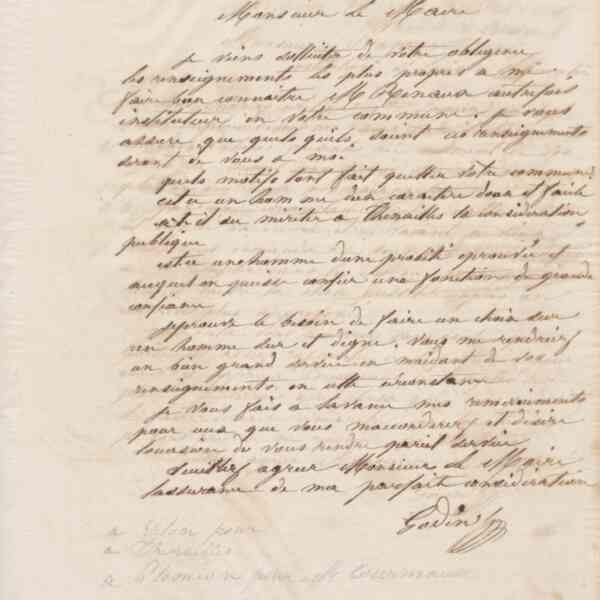 Monsieur Le Maire
je viens solliciter de votre obligence
les renseignements les plus propres a me
faire bien connaitre M Renaux autrefois
instituteur en votre commune. je vous
assure que quels quils soient ces renseignements
seront de vous a moi.
quels motifs lont fait quitter votre commune
est ce un homme dun caractère doux et facile
a t il su mériter a Thenailles la considération
publique
est ce un homme dune probité éprouvée et
auquel on puisse confier une fonction de grande
confiance
jeprouve le besoin de faire un choix sur
un homme sur et digne. vous me rendriez
un bien grand service en maidant de vos
renseignements en cette circonstance
je vous fais a lavance mes remerciements
pour ceux que vous maccorderez et désire
loccasion de vous rendre pareil service
veuillez agreer Monsieur Le Maire
lassurance de ma parfait considération
Godin
a pour
a
a pour M